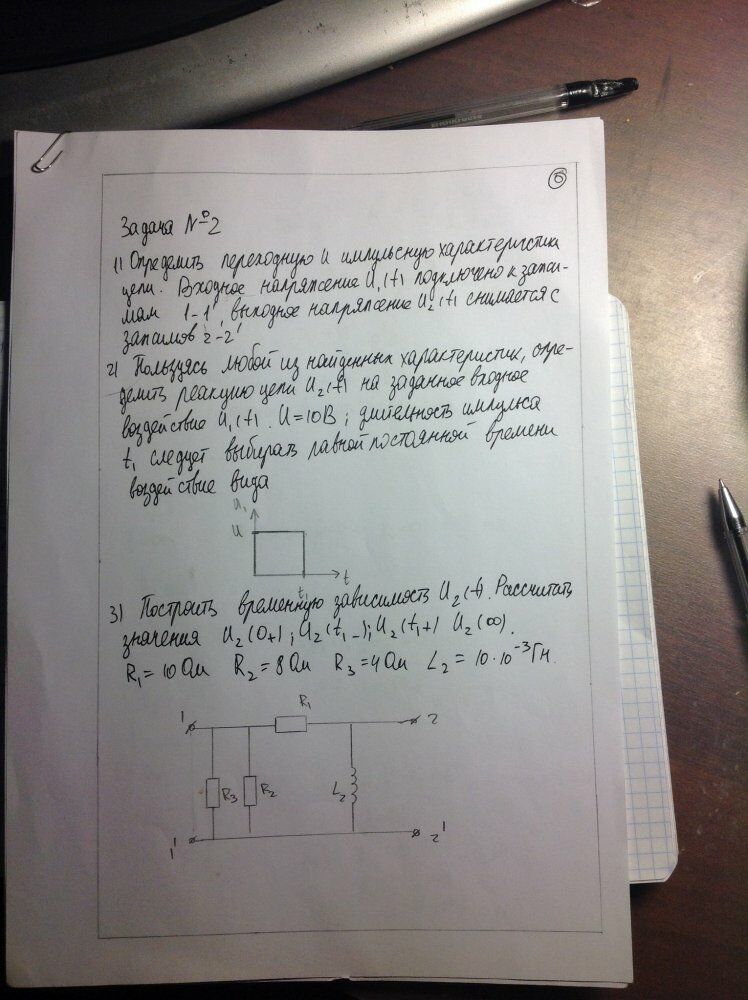 5
Задача №2
1) Определить переходную и импульсную характеристики
цепи. Входное напряжение U₁(t) подключено к зажи-
мам 1-1', выходное напряжение U₂(t) снимается с
зажимов 2-2'
2) Пользуясь любой из найденных характеристик, опре-
делить реакцию цепи U₂(t) на заданное входное
воздействие U₁(t). U=10В; длительность импульса
t₁ следует выбирать равной постоянной времени
воздействие вида
U₁
U
t₁
t
3) Построить временную зависимость U₂(t). Рассчитать
значения U₂(0+); U₂(t₁-); U₂(t₁+) U₂(∞).
R₁=10 Ом R₂=8 Ом R₃=4 Ом L₂=10·10⁻³Гн.
R₁
1
2
R₃
R₂
L₂
1'
2'